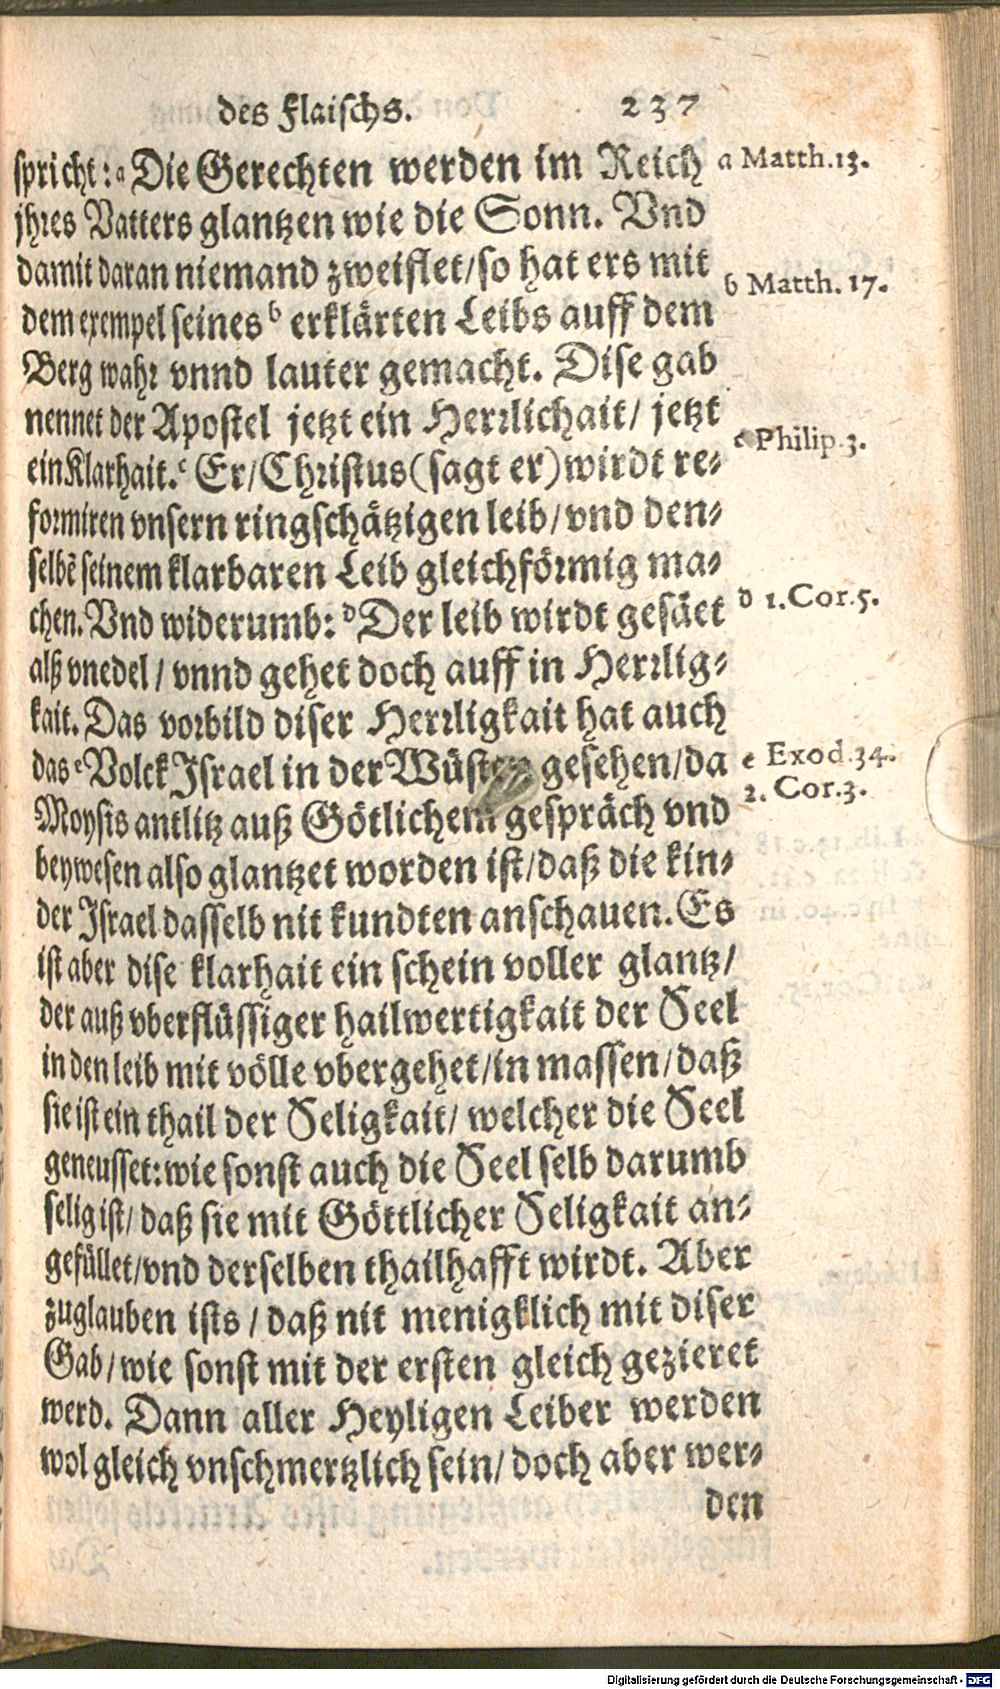 des Flaischs. 237
spricht: a Die Gerechten werden im Reich
jhres Vatters glantzen wie die Sonn. Vnd
damit daran niemand zweiflet/ so hat ers mit
dem exempel seines b erklärten Leibs auff dem
Berg wahr vnnd lauter gemacht. Dise gab
nennet der Apostel jetzt ein Herrlichait/ jetzt
ein Klarhait. c Er/ Christus (sagt er) wirdt re-
formiren vnsern ringschätzigen leib/ vnd den-
selbẽ seinem klarbaren Leib gleichförmig ma-
chen. Vnd widerumb: d Der leib wirdt gesäet
alß vnedel/ vnnd gehet doch auff in Herrlig-
kait. Das vorbild diser Herrligkait hat auch
das e Volck Israel in der Wüsten gesehen/ da
Moysis antlitz auß Götlichem gespräch vnd
beywesen also glantzet worden ist/ daß die kin-
der Israel dasselb nit kundten anschauen. Es
ist aber dise klarhait ein schein voller glantz/
der auß vberflüssiger hailwertigkait der Seel
in den leib mit völle vbergehet/ in massen/ daß
sie ist ein thail der Seligkait/ welcher die Seel
geneusset: wie sonst auch die Seel selb darumb
selig ist/ daß sie mit Göttlicher Seligkait an-
gefüllet/ vnd derselben thailhafft wirdt. Aber
zuglauben ists/ daß nit menigklich mit diser
Gab/ wie sonst mit der ersten gleich gezieret
werd. Dann aller Heyligen Leiber werden
wol gleich vnschmertzlich sein/ doch aber wer-
den
a Matth.13.
b Matth. 17.
c Philip.3.
d 1.Cor.5.
e Exod.34.
2. Cor.3.
Digitalisierung gefördert durch die Deutsche Forschungsgemeinschaft - DFG